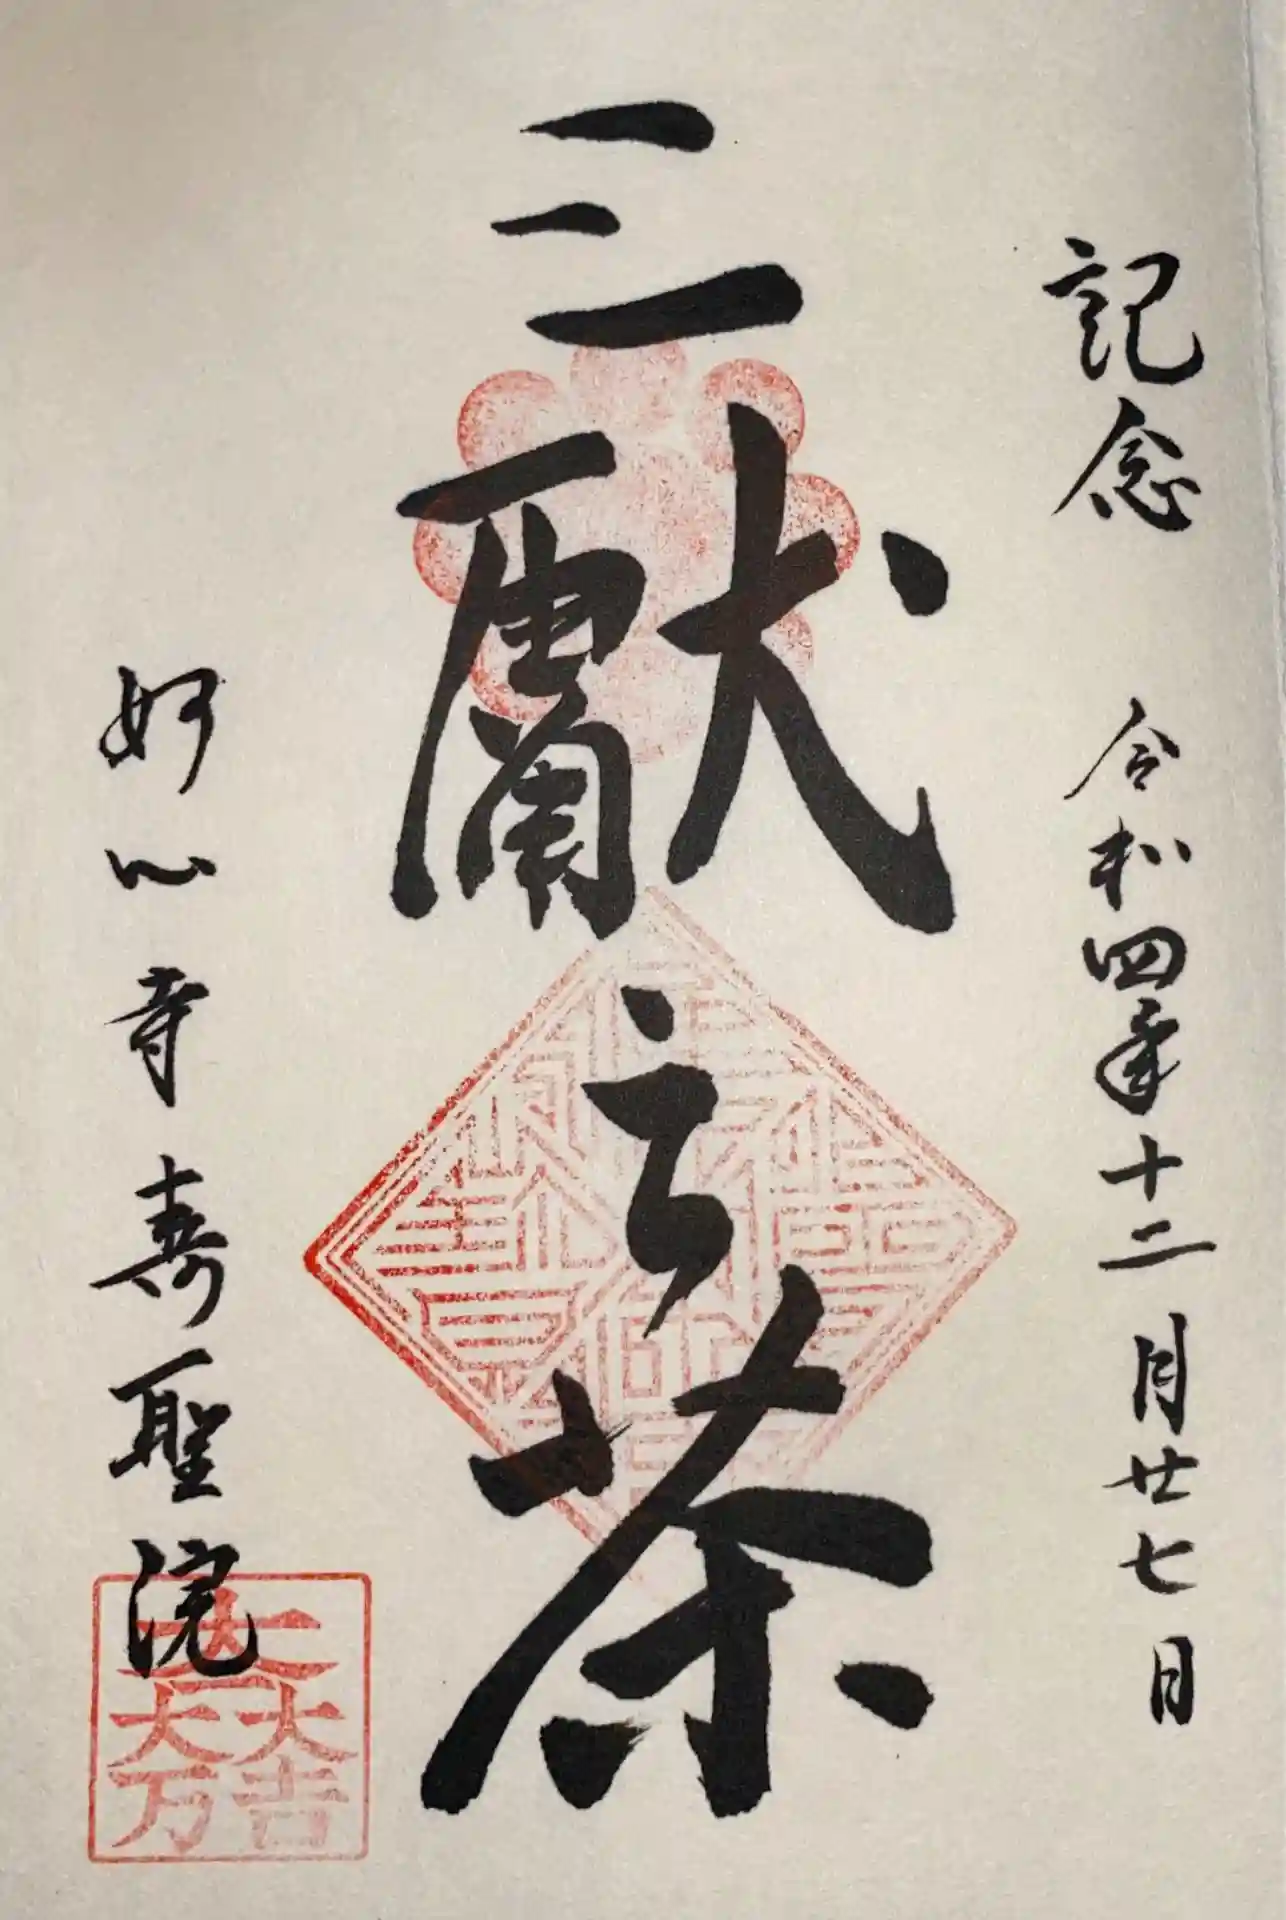 記念 令和四年十二月廿七日
三献之茶
妙心寺 寿聖院
大一大万大吉